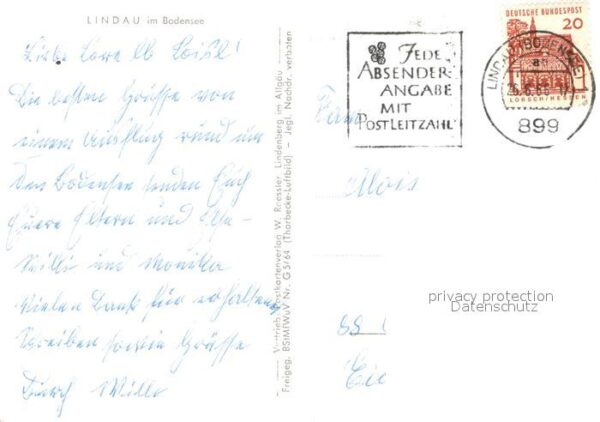 LINDAU im Bodensee
Liebe
Die besten Grüsse von
einem Ausflug rund um
den Bodensee senden Euch
Euere Eltern und
Willi und Monika
Vielen Dank für erhaltene
Schreiben sowie Grüsse
durch Willi
Vertrieb: Postkartenverlag W. Roessler, Lindenberg im Allgäu
Freigeg. BStMfWuV Nr. G 5/64 (Thorbecke-Luftbild) – Jegl. Nachdr. verboten
JEDE
ABSENDER-
ANGABE
MIT
POSTLEITZAHL
LINDAU (BODENSEE)
899
DEUTSCHE BUNDESPOST
20
LORSCH/HESSEN
Alois
privacy protection
Datenschutz